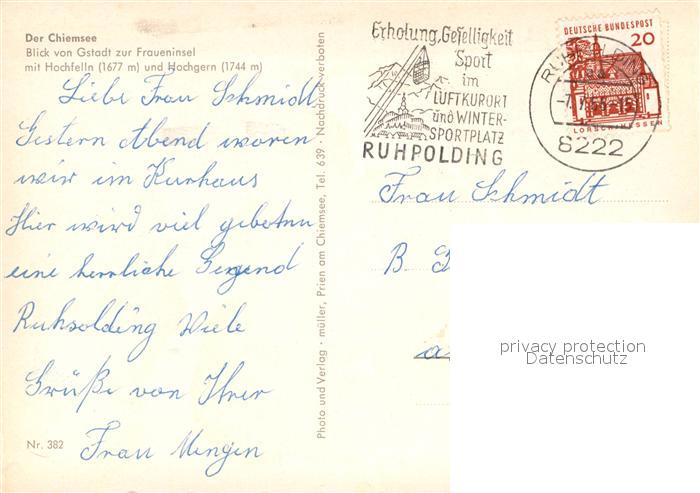 Der Chiemsee
Blick von Gstadt zur Fraueninsel
mit Hochfelln (1677 m) und Hochgern (1744 m)
Liebe Frau Schmidt
Gestern Abend waren
wir im Kurhaus
Hier wird viel geboten
eine herrliche Gegend
Ruhpolding Viele
Grüße von Ihrer
Frau Mengen
Nr. 382
Photo und Verlag · müller, Prien am Chiemsee, Tel. 639 · Nachdruck verboten
Erholung, Geselligkeit
Sport
im
LUFTKURORT
und WINTER-
SPORTPLATZ
RUHPOLDING
8222
DEUTSCHE BUNDESPOST
20
LORSCH/HESSEN
Frau Schmidt
B.
privacy protection
Datenschutz